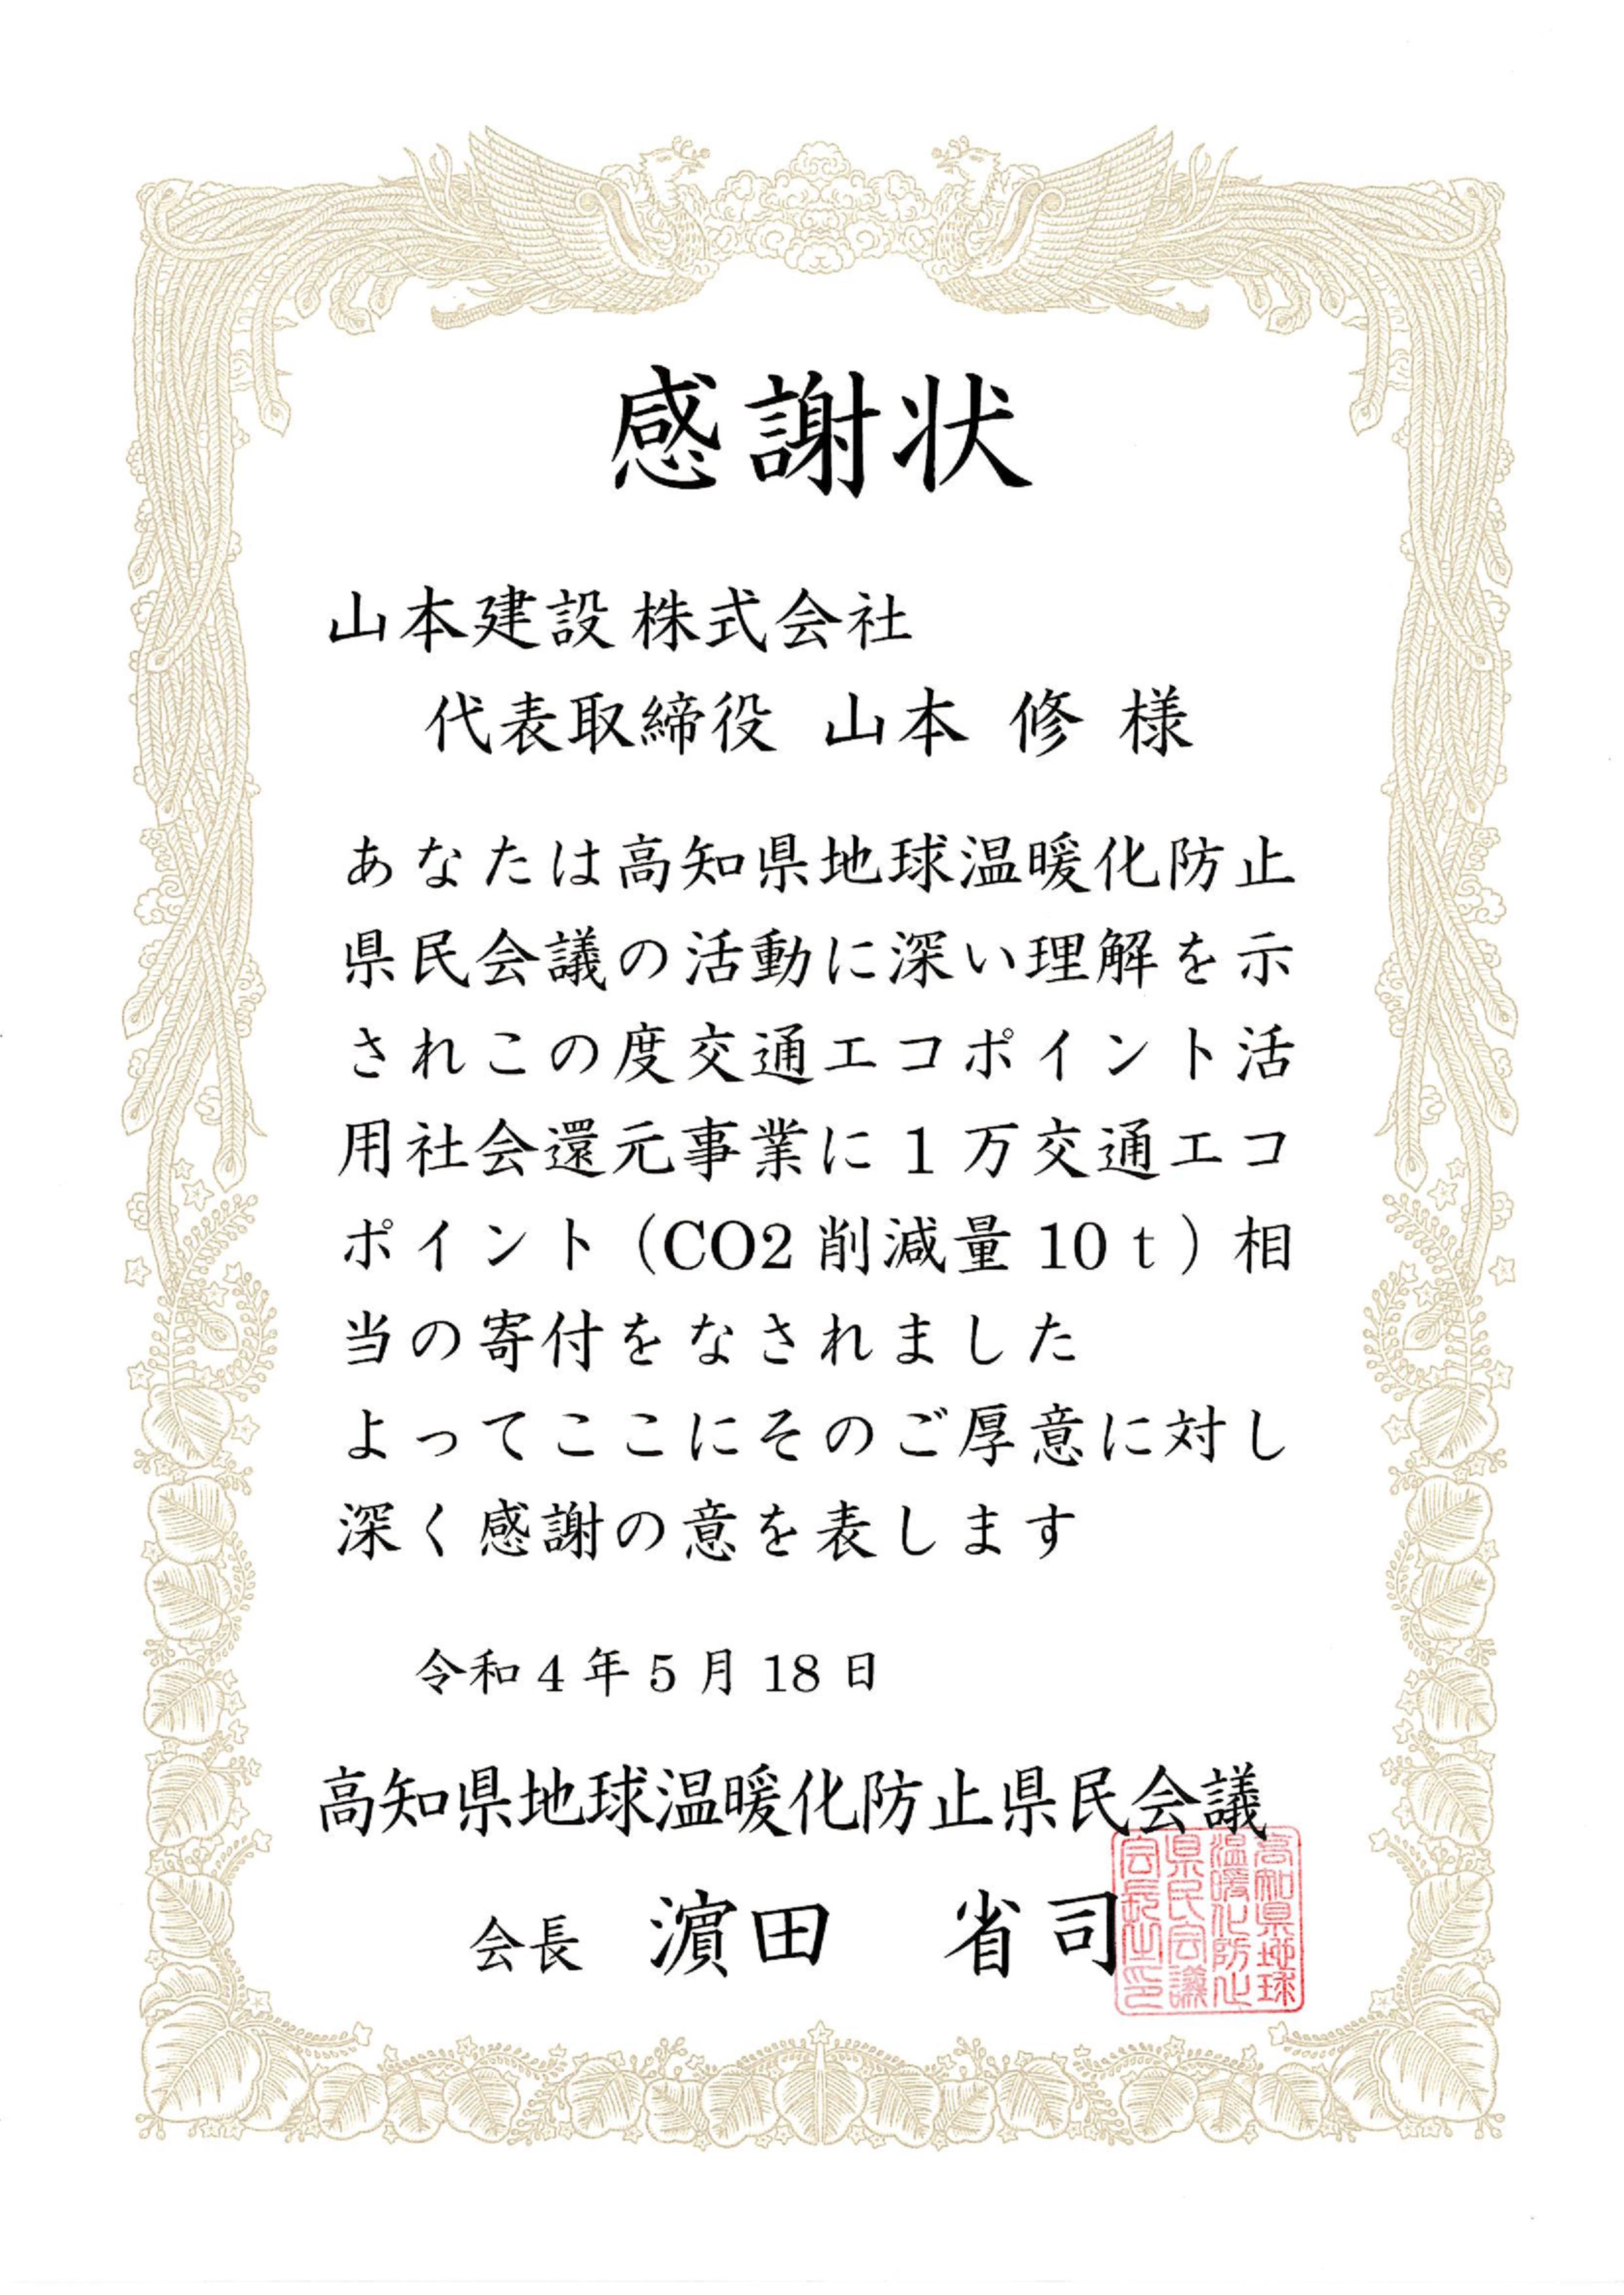 感謝状
山本建設 株式会社
代表取締役 山本 修 様
あなたは高知県地球温暖化防止
県民会議の活動に深い理解を示
されこの度交通エコポイント活
用社会還元事業に１万交通エコ
ポイント（CO2 削減量 10ｔ）相
当の寄付をなされました
よってここにそのご厚意に対し
深く感謝の意を表します
令和 4 年 5 月 18 日
高知県地球温暖化防止県民会議
会長 濵田 省司
高知県地球
温暖化防止
県民会議
会長之印